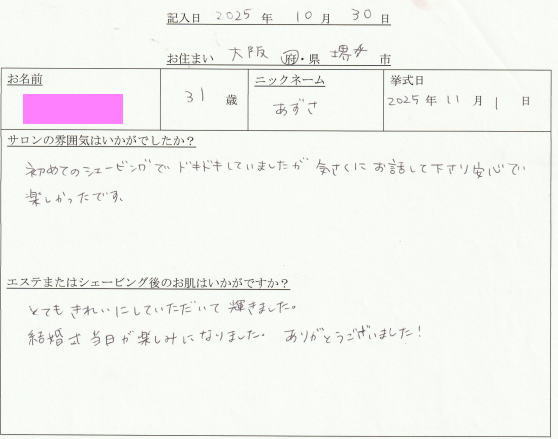 記入日 2025 年 10 月 30 日
お住まい 大阪 府・県 堺 市
お名前 31 歳 ニックネーム あずさ 挙式日 2025 年 11 月 1 日
サロンの雰囲気はいかがでしたか？
初めてのシェービングでドキドキしていましたが 気さくに お話して下さり安心で
楽しかったです。
エステまたはシェービング後のお肌はいかがですか？
とても きれいにしていただいて 輝きました。
結婚式当日が楽しみになりました。 ありがとうございました！